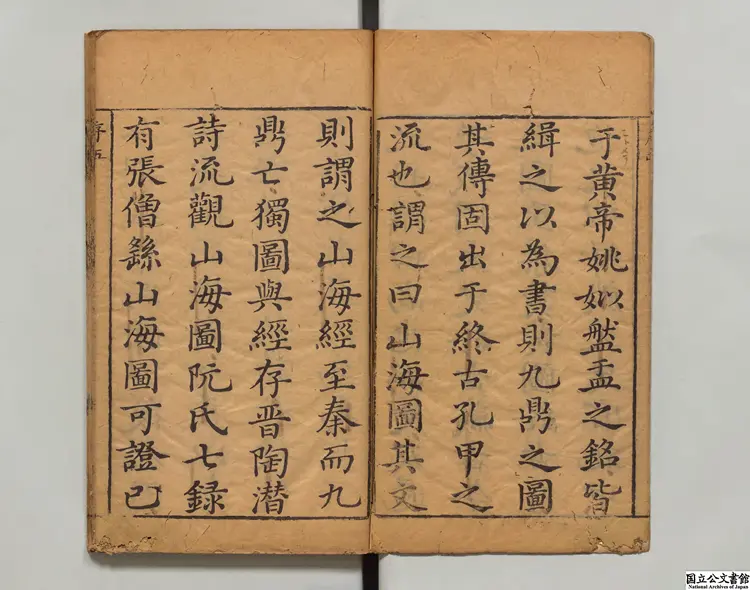 于黄帝姚姒盤盂之銘皆
緝之以為書則九鼎之圖
其傳固出于終古孔甲之
流也謂之曰山海圖其文
則謂之山海經至秦而九
鼎亡獨圖與經存晋陶潜
詩流觀山海圖阮氏七録
有張僧繇山海圖可證已
序五
国立公文書館
National Archives of Japan